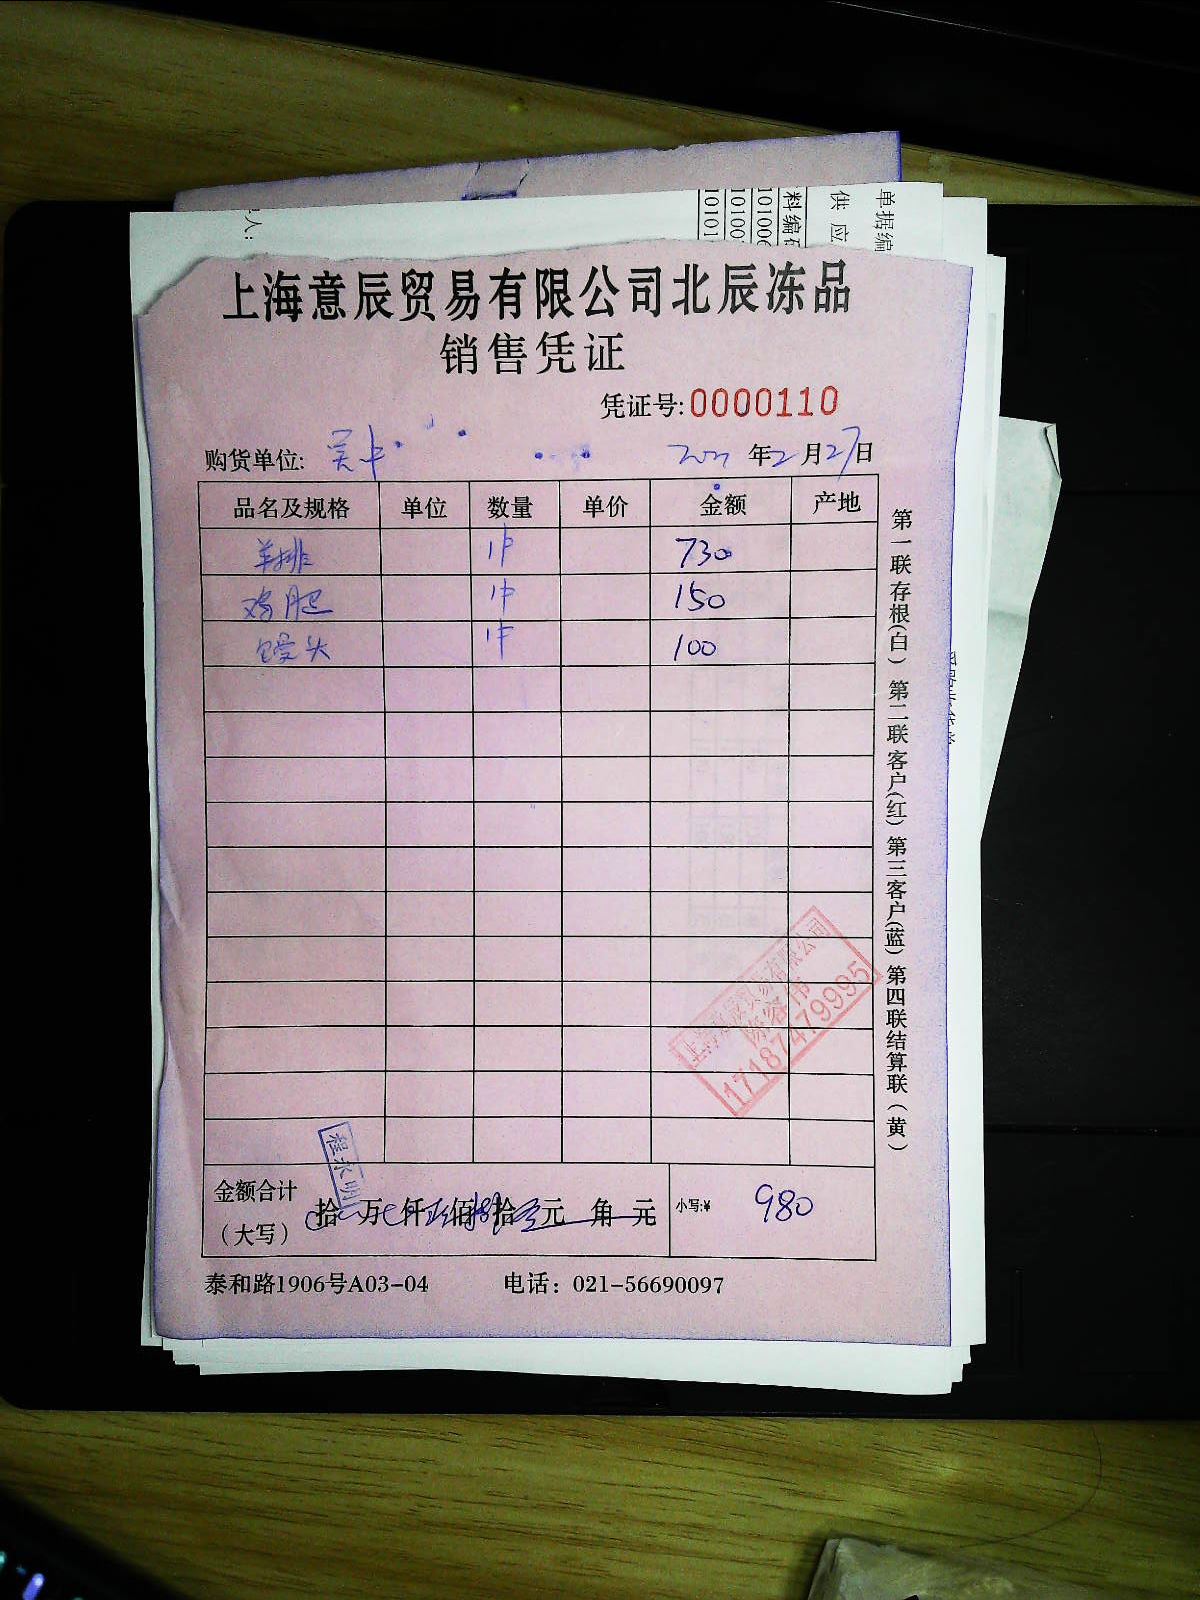 单据编
供应
料编码
10100
10100
10101
人:
上海意辰贸易有限公司北辰冻品
销售凭证
凭证号:0000110
购货单位: 吴中 年2月27日
品名及规格 单位 数量 单价 金额 产地
羊排 1件 730
鸡肥 1件 150
馒头 1件 100
第一联存根(白) 第二联客户(红) 第三客户(蓝) 第四联结算联(黄)
上海意辰贸易有限公司
17187479995
程永明
金额合计
(大写) 拾 万 仟 佰 拾 元 角 元 小写:¥ 980
泰和路1906号A03-04 电话: 021-56690097